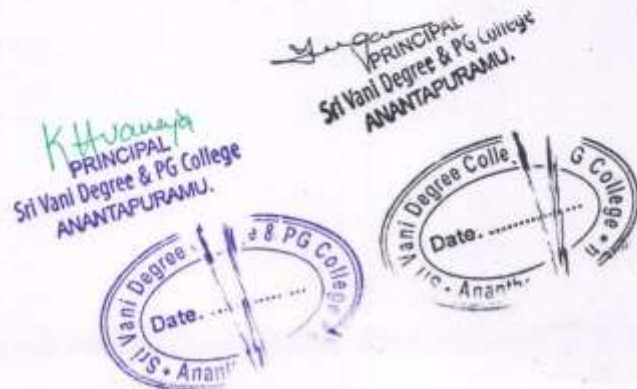 PRINCIPAL
Sri Vani Degree & PG College
ANANTAPURAMU.
PRINCIPAL
Sri Vani Degree & PG College
ANANTAPURAMU.
Sri Vani Degree & PG College
Date. ..............
Vani Degree Colle G College
Date. ..............